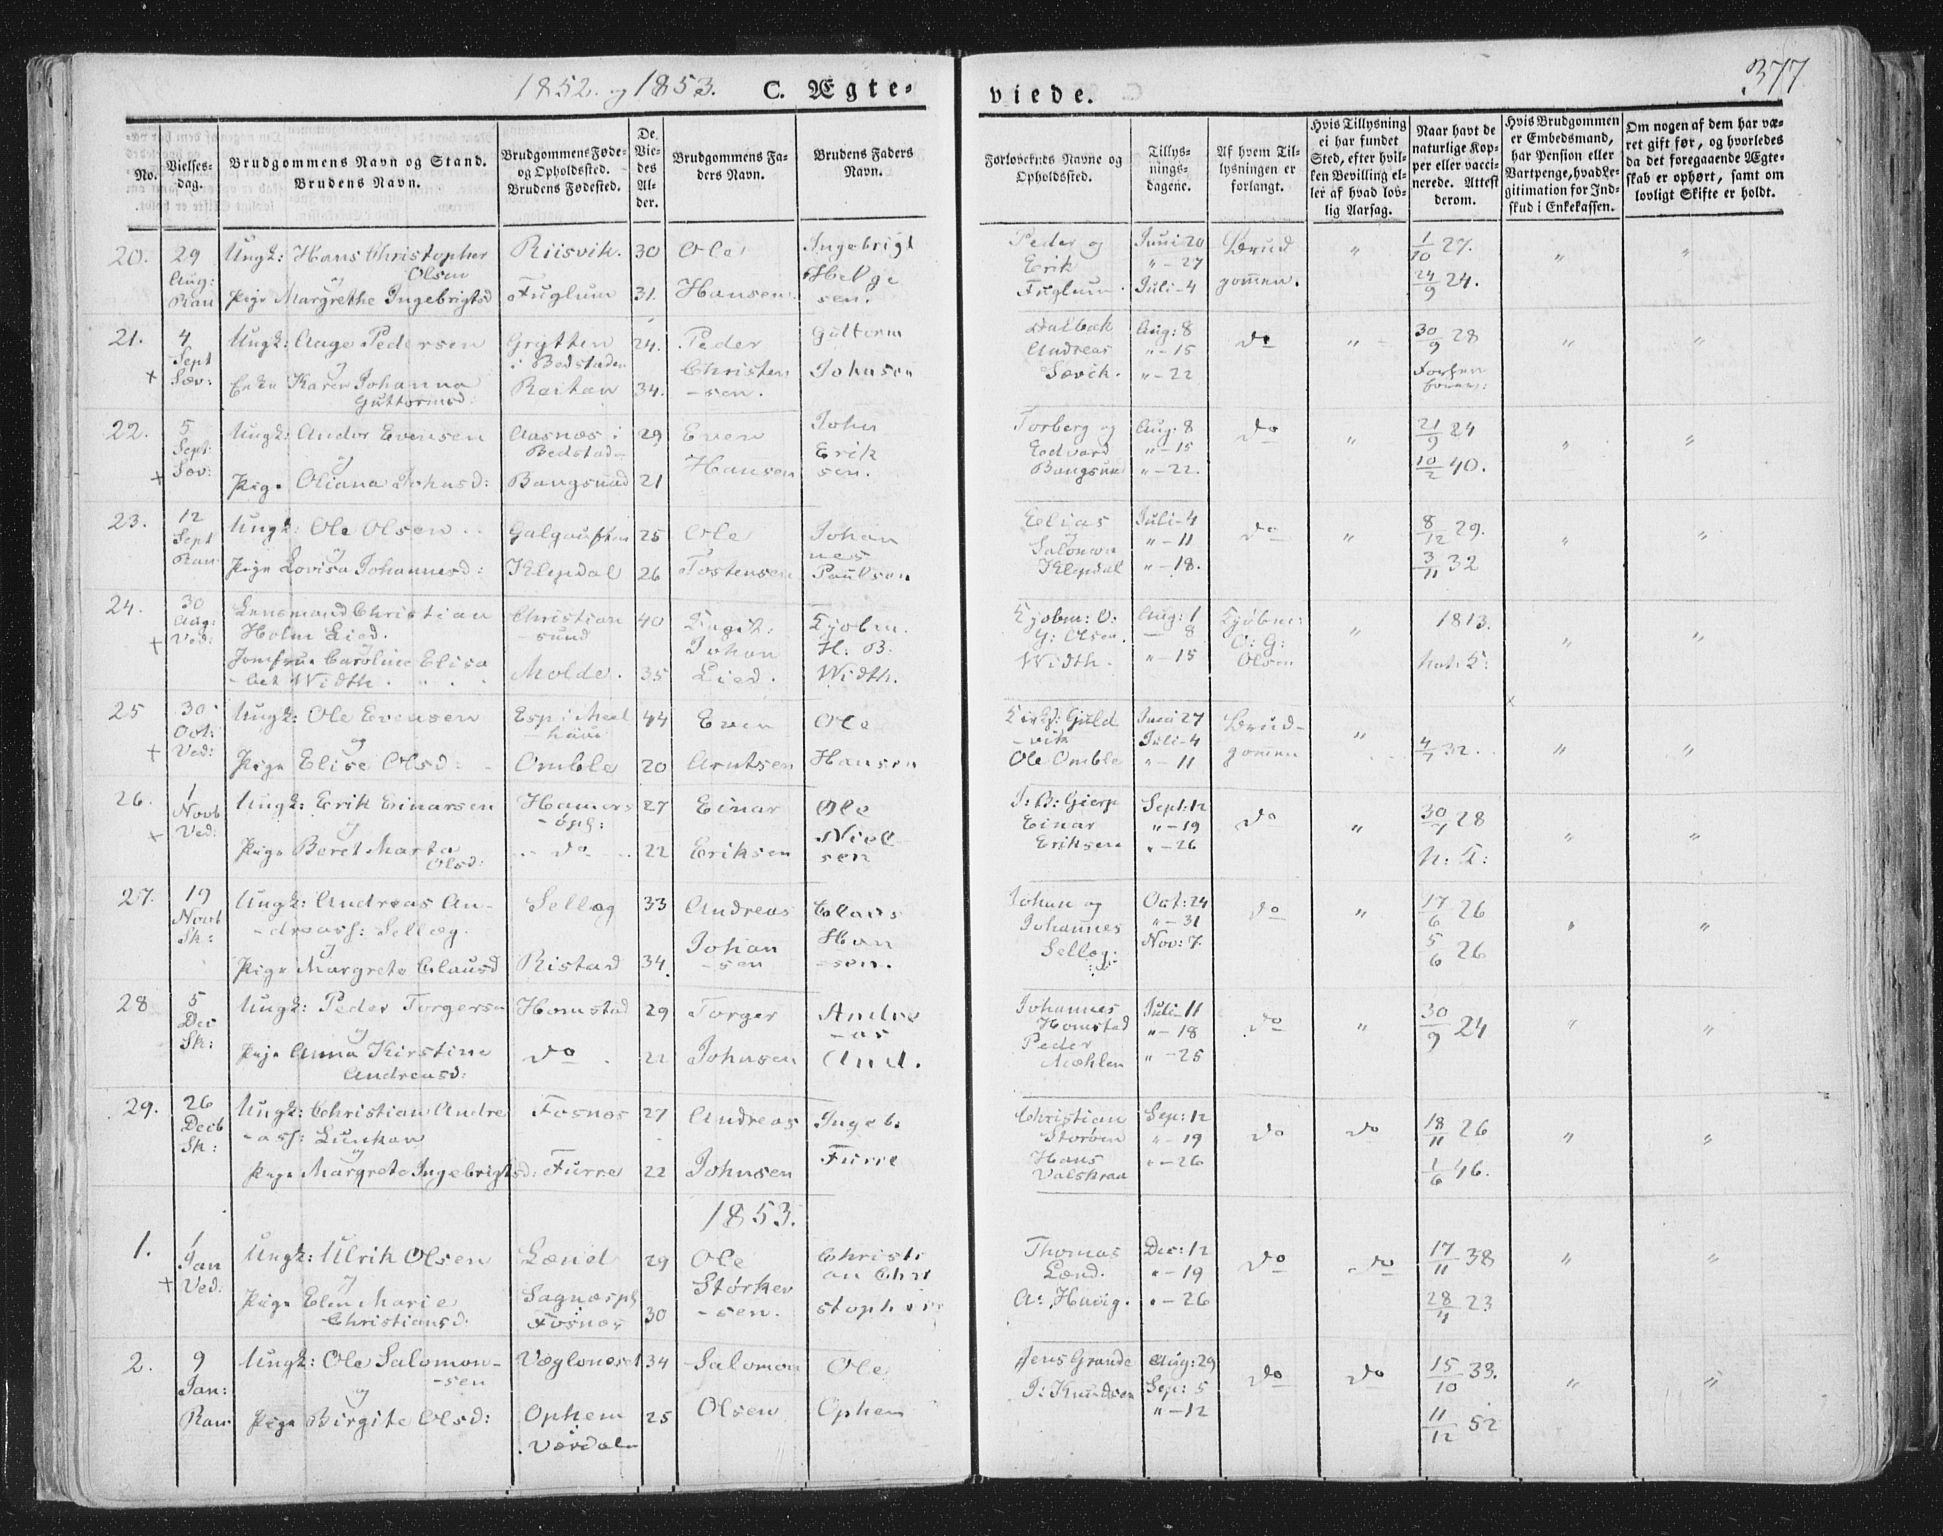 1852. og 1853. C. Ægte-
viede.
377
No.
Vielses-
dag.
Brudgommens Navn og Stand.
Brudens Navn.
Brudgommens Føde-
og Opholdssted.
Brudens Fødested.
De
Vie-
des
Al-
der.
Brudgommens Fa-
ders Navn.
Brudens Faders
Navn.
Forlovernes Navne og
Opholdssted.
Tillys-
nings-
dagene.
Af hvem Til-
lysningen er
forlangt.
Hvis Tillysning
ei har fundet
Sted, efter hvil-
ken Bevilling el-
ler af hvad lov-
lig Aarsag.
Naar havt de
naturlige Kop-
per eller vacci-
nerede. Attest
derom.
Hvis Brudgommen
er Embedsmand,
har Pension eller
Vartpenge, hvad Le-
gitimation for Ind-
skud i Enkekassen.
Om nogen af dem har væ-
ret gift før, og hvorledes
da det foregaaende Ægte-
skab er ophørt, samt om
lovligt Skifte er holdt.
20. 29 Aug: Ran
Ungk: Hans Christopher
Olsen
og
Pige Margrethe Ingebrigtsd
Riisvik. 30
Fuglum 31.
Ole
Hansen.
Ingebrigt
Helge
sen.
Peder og
Erik
Fuglum.
Juni 20
" - 27
Juli - 4
Brud
gommen.
" 1/10 27.
24/9 24.
" "
21. 4 Sept Sæv: +
Ungk: Aage Pedersen
og
Enke Karen Johanna
Guttormsd:
Grytten
i Bedstaden
Reitan
24.
34.
Peder
Christen
-sen.
Guttorm
Johnsen
Andreas
Sævik.
Aug: 8
" - 15
" - 22
do " 30/9 28
" "
22. 5 Sept: Sæv: +
Ungk: Andor Evensen
og
Pige Oliana Johnsd:
Aasnæs i
Bedstad
Bangsund
29
21
Even
Hansen
John
Erik
sen.
Torberg og
Edvard
Bangsund
Aug: 8
" - 15
" - 22.
do " 21/9 24
10/2 40.
" "
23. 12 Sept Ran
Ungk: Ole Olsen
og
Pige Lovisa Johannesd:
Klepdal
25
26
Ole
Tostensen
Johan
nes
Paulsen
Elias
Salomon
Klepdal
Juli - 4
" - 11
" - 18.
do " 8/12 29.
3/11 32
" "
24. 30 Aug: Ved: +
Lensmand Christian
Holm Lied.
og
Jomfrue Caroline Elisa
-bet Width.
Christian
sund
Molde.
40
35
Johan
Lied.
Kjøbm.
H: B:
Width.
Kjøbm: O:
G: Olsen.
Width.
Aug: 1
— 8
" - 15
Kjøbm:
O: G:
Olsen
" 1813.
nat: K:
" "
25 30 Oct: Ved: +
Ungk: Ole Evensen
og
Pige Elise Olsd:
Esp i Meel
huus
Omble
44
20
Even
Arntsen
Ole
Hansen
Kirks: Guld
-vik
Ole Omble
Juni 27
Juli - 4
" - 11
Brud-
gommen
" 4/7 32.
" "
26. 1 Novb Ved: +
Ungk: Erik Einarsen
og
Pige Beret Marta
Olsd:
Hamars
-øph:
do
27
22
Einar
Eriksen
Ole
Niel
sen
J: B: Gierp
Einar
Eriksen
Sept: 12
" - 19
" - 26
do " 30/7 28
n: K:
" "
27. 19 Novb Sk:
Ungk: Andreas An-
-dreass: Sellæg.
og
Pige Margrete Clausd
Sellæg
Ristad
33
34.
Andreas
Johan
-sen
Claus
Han
-sen.
Johan og
Johannes
Sellæg:
Oct: 24
" - 31
Nov: 7.
do " 17/6 26
5/6 26
" "
28 5 Dec Sk:
Ungk: Peder Torgersen
og
Pige Anna Kirstine
Andreasd:
Homstad
do
29
22
Torger
Johnsen
Andre
-as
And.
Johannes
Homstad
Peder
Mæhlen
Juli - 11
" - 18
" - 25
do " 30/9 24
" "
29. 26 Decb Sk:
Ungk: Christian Andre
-ass: Lunkan
og
Pige Margrete Ingebrigtsd:
Fosnæs
Furre
27
22
Andreas
Johnsen
Ingeb:
Furre
Christian
Storøen
Hans
Valskraa
Sep: 12
" - 19
" - 26
do do 18/11 26
1/6 46.
" "
1853.
1. 1 Jan Ved: +
Ungk: Ulrik Olsen
og
Pige Elen Marie
Christiansd:
Lænd
Sagnæsph
Fosnæs
29
30
Ole
Størker
-sen.
Christi
an Chri
stophers
Thomas
Lænd.
A: Havig.
Dec: 12
" - 19
" - 26
do do 17/11 38
28/4 23
" "
2. 9 Jan: Ran
Ungk: Ole Salomon-
-sen
og
Pige Birgite Olsd:
Væglonæs
Ophem
Værdalen
34
25
Salomon
Olsen
Ole
Ophem
Jens Grande
J: Knudsen
Aug: 29
Sep: 5
" - 12
do do 15/10 33.
11/12 52
" "